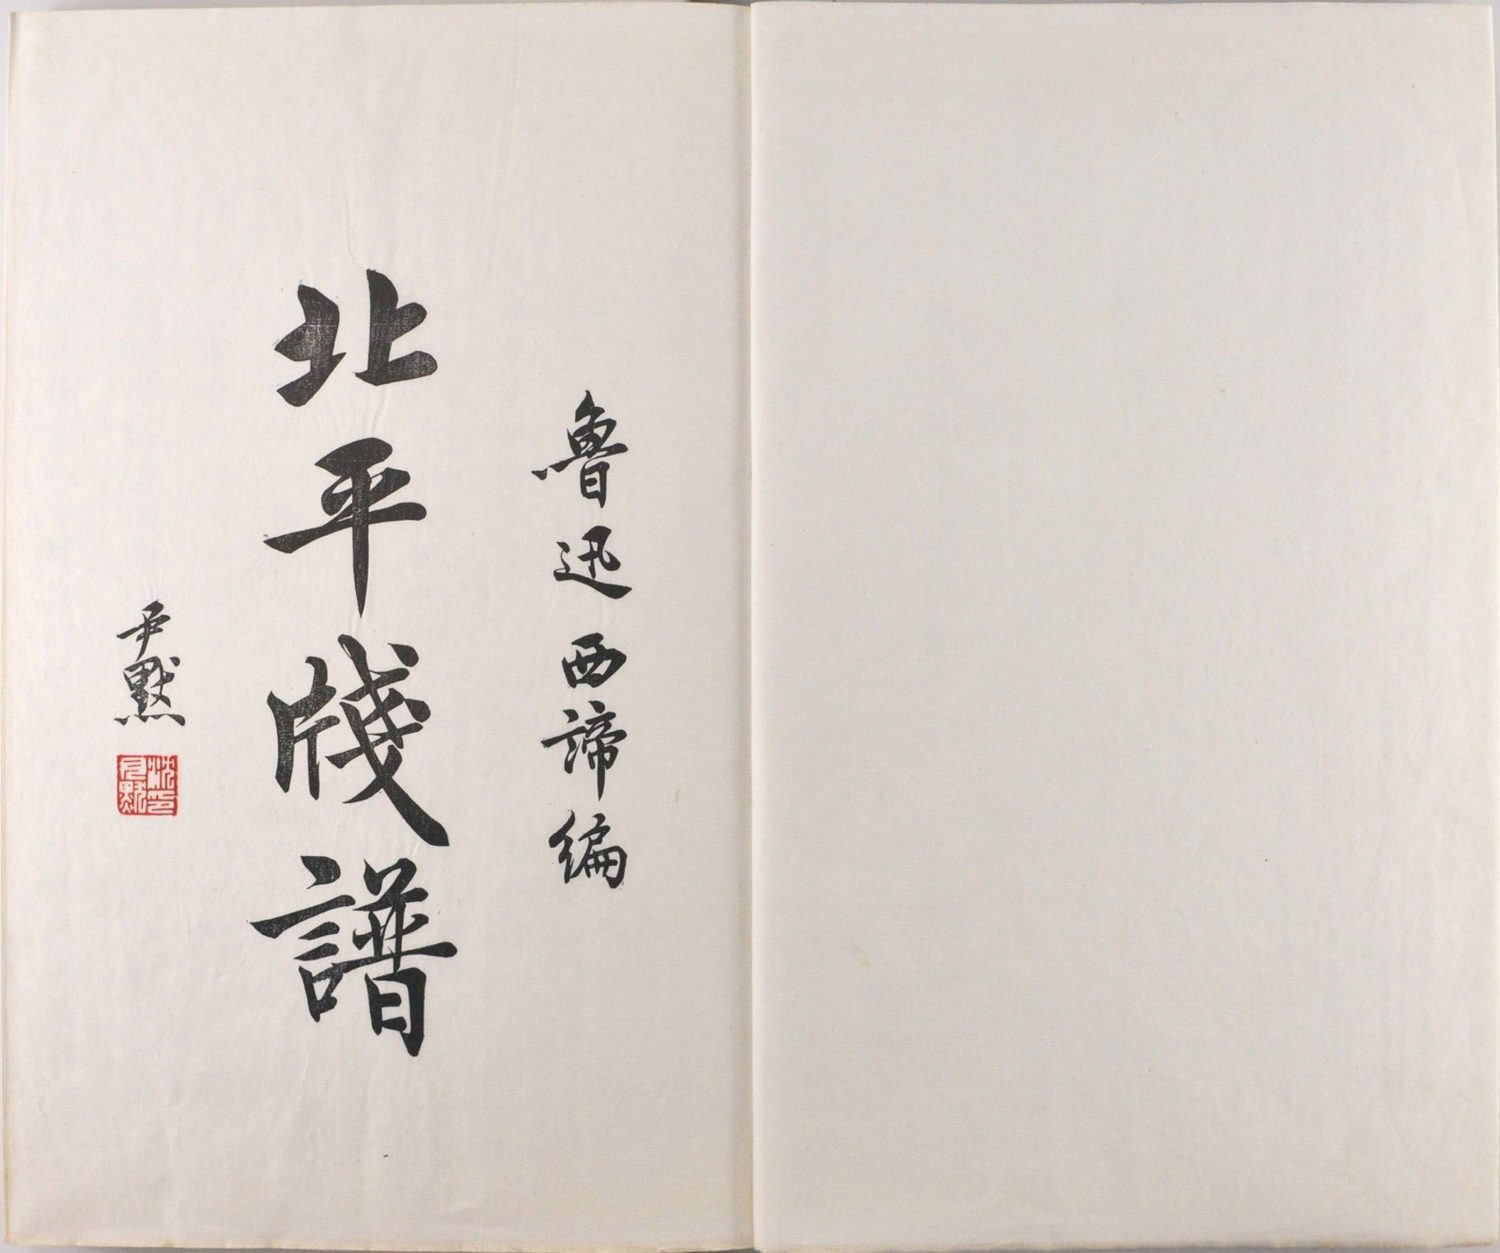 魯迅 西諦編
北平牋譜
尹默
沈尹默印